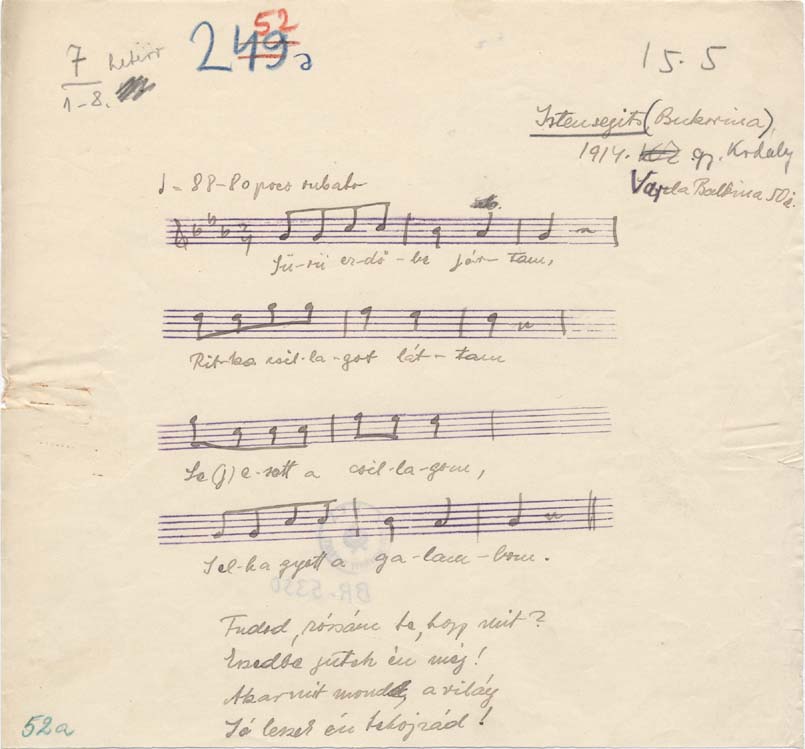 52
249a
7 heterr
1-8.
15.5
Istensegits (Bukovina),
1914. gy. Kodály
Varga Balbina 50 é.
♩= 88-80 poco rubato
Sü-rü er-dő-be jár-tam,
Rit-ka csil-la-got lát-tam
Le(j)e-sett a csil-la-gom,
El-ha gyott a ga-lam-bom.
BR-5350
Tudod, rózsám te, hogy mit?
Eszedbe jutok én még!
Akarmit mond a világ
Jó leszek én tehozzád!
52a